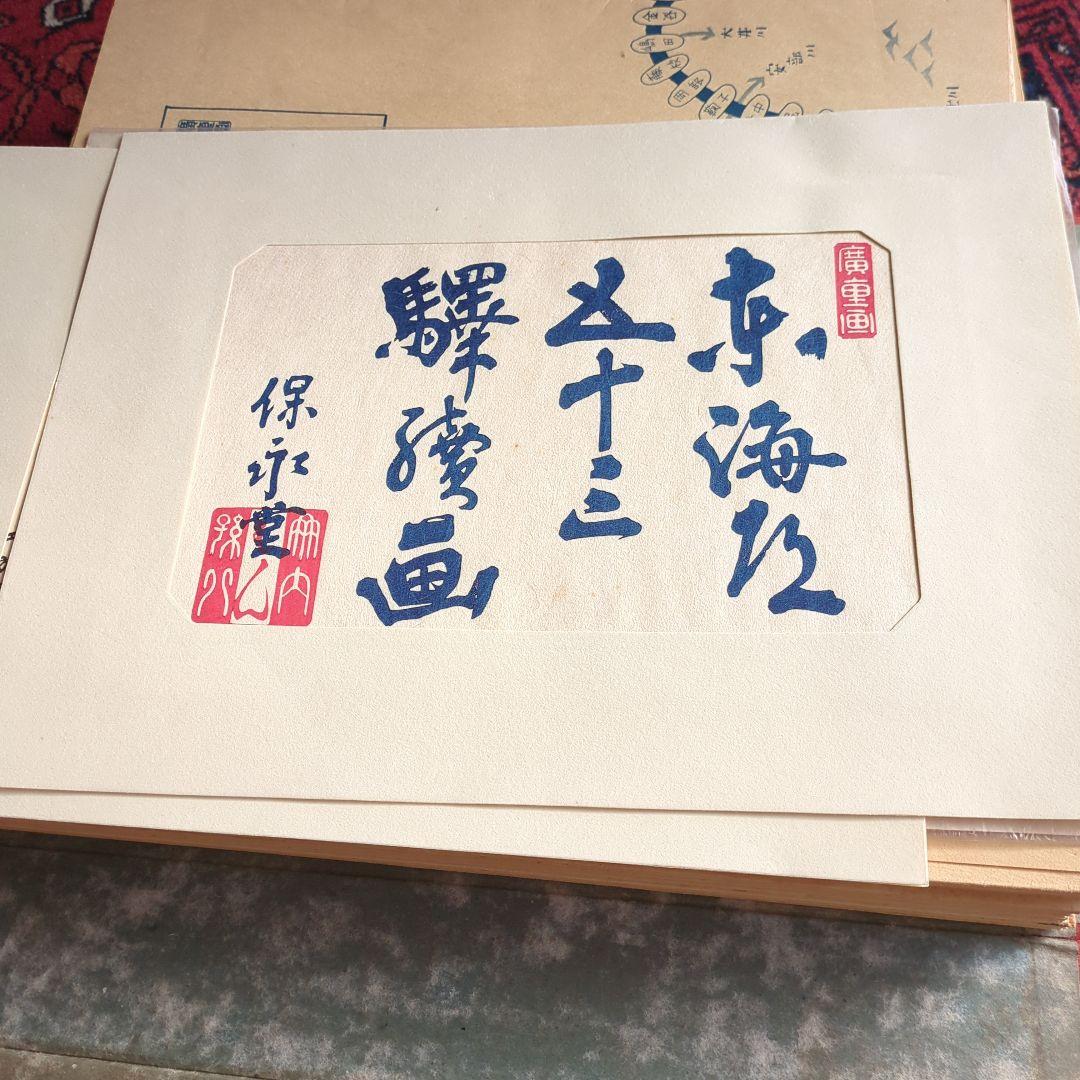 廣重画
東海道
五十三
驛續画
保永堂
竹内
孫八
金谷
嶋田
藤枝
岡部
鞠子
中
大井川
安部川
川